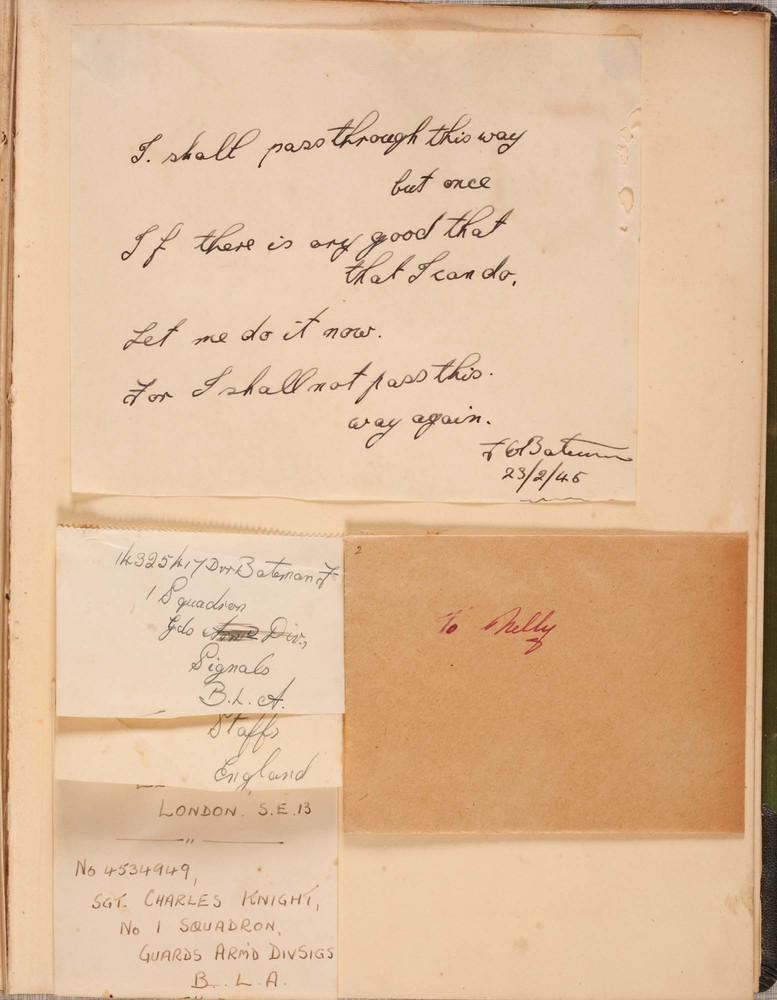 I. shall pass through this way
but once
If there is any good that
that I can do,
Let me do it now.
For I shall not pass this.
way again.
Bateman
23/2/45
14325417 Dvr Bateman F
1 Squadron
Gds Div,
Signals
B.L.A.
Staffs
England
LONDON. S.E.13
"
No 4534949,
SGT. CHARLES KNIGHT,
No 1 SQUADRON,
GUARDS ARM'D DIVSIGS
B.L.A.
2
To Nelly